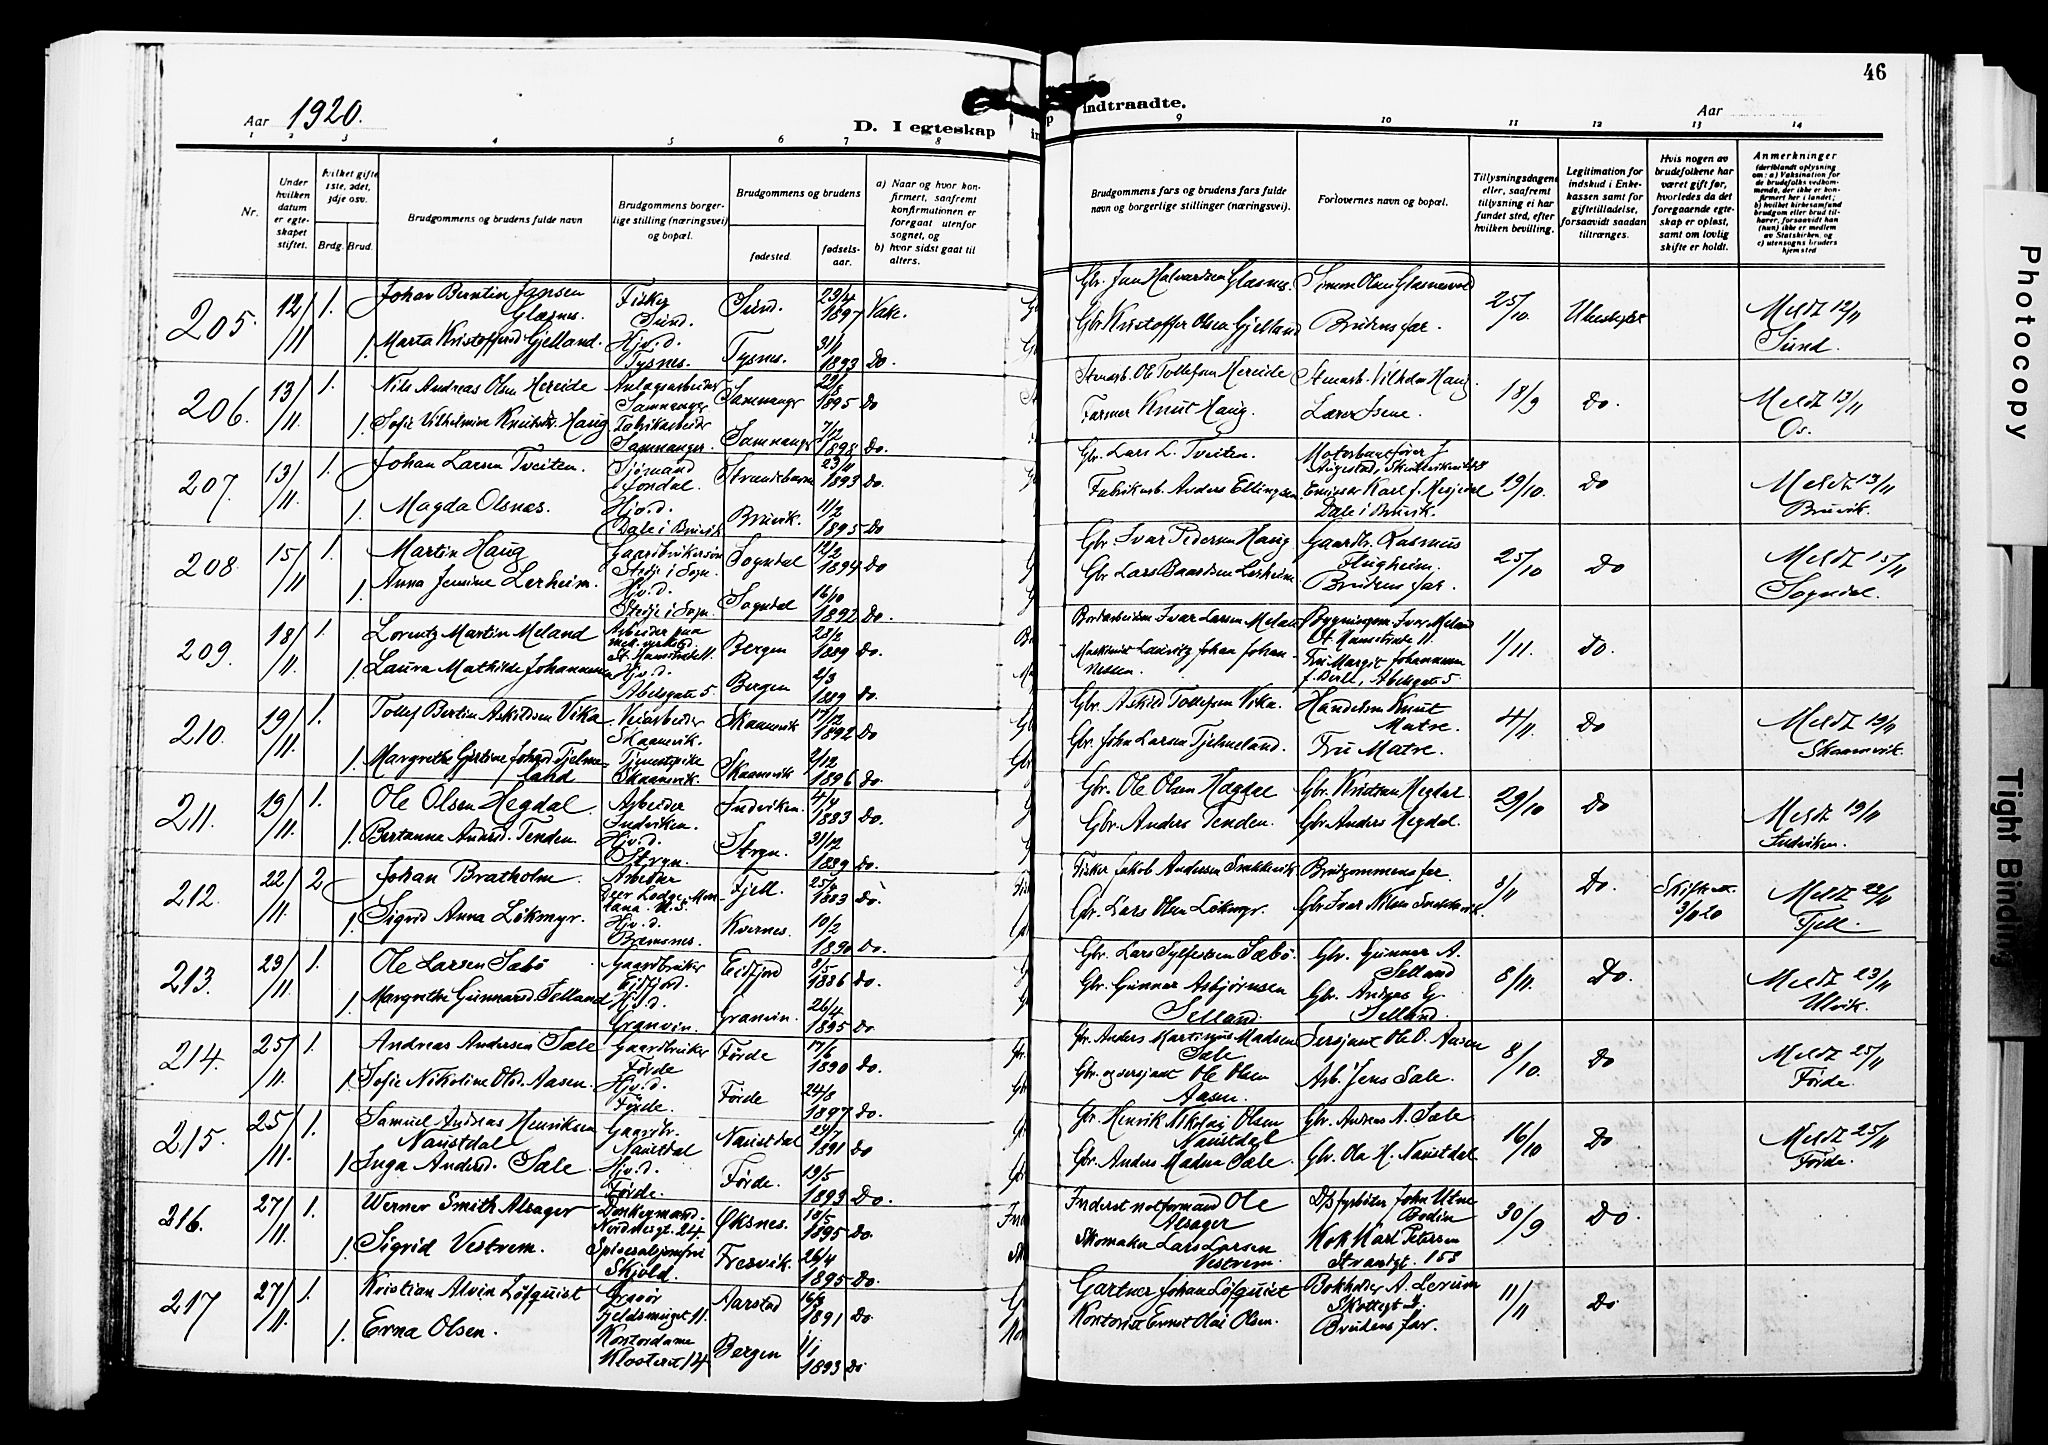 46
Aar 1920.
D. I egteskap
indtraadte.
Aar
1 2 3 4 5 6 7 8
9 10 11 12 13 14
Nr.
Under hvilken datum er egteskapet stiftet.
hvilket gifte 1ste, 2det, 3dje osv.
Brdg. Brud.
Brudgommens og brudens fulde navn
Brudgommens borgerlige stilling (næringsvei) og bopæl.
Brudgommens og brudens
fødested.
fødselsaar.
a) Naar og hvor konfirmert, saafremt konfirmationen er foregaat utenfor sognet, og
b) hvor sidst gaat til alters.
Brudgommens fars og brudens fars fulde navn og borgerlige stillinger (næringsvei).
Forlovernes navn og bopæl.
Tillysningsdagene eller, saafremt tillysning ei har fundet sted, efter hvilken bevilling.
Legitimation for indskud i Enkekassen samt for giftetilladelse, forsaavidt saadan tiltrænges.
Hvis nogen av brudefolkene har været gift før, hvorledes da det foregaaende egteskap er opløst, samt om lovlig skifte er holdt.
Anmerkninger
(deriblandt oplysning om: a) Vaksination for de brudefolks vedkommende, der ikke er konfirmert her i landet; b) hvilket kirkesamfund brudgom eller brud tilhører, forsaavidt han (hun) ikke er medlem av Statskirken, og c) utensogns bruders hjemsted
205. 12/11 1. Johan Berntin Jansen Glæsnes. Fisker Sund. Sund. 23/4 1897 Vake. Gbr. Jan Halvardsen Glæsnes. 25/10. Meldt 12/11 Sund.
1. Marta Kristoffersd. Gjelland. Hjv. d. Tysnes. Tysnes. 31/1 1893 Do. Gbr. Kristoffer Olsen Gjelland Brudens far.
206. 13/11. 1. Nils Andreas Olsen Hereide Anlægsarbeider Samnanger 1895 Do Stenarb. Ole Tollefsen Hereide Stenarb. Vilhelm Haug. 18/9 Do. Meldt 13/11 Os.
1. Sofie Vilhelmine Knutsdr. Haug Fabrikarbeider Samnanger. Samnanger 7/12 1898 Do. Farmer Knut Haug.
207. 13/11. 1. Johan Larsen Tveiten. Sjømand Jondal. Strandebarm 23/11 1893 Do. Gbr. Lars L. Tveiten. 19/10. Do Meldt 13/11 Bruvik.
1. Magda Olsnes. Hjv. d. Dale i Bruvik Bruvik. 11/2 1895 Do Fabrikarb. Anders Ellingsen. Dale i Bruvik.
208. 15/11 1. Martin Haug Stedje i Sogn. Sogndal 12/2 1894 Do Gbr. Ivar Pedersen Haug Gaardbr. Rasmus Flugheim. 25/10 Do Meldt 15/11 Sogndal.
1. Anna Jensine Lerheim. Hjv. d. Stedje i Sogn. Sogndal 16/10 1892 Do. Gbr. Lars Baardsen Lerheim Brudens far.
209. 18/11. 1. Lorentz Martin Meland Arbeider paa mek. verksted. Bergen 1889 Do. 1/11. Do.
1. Laura Mathilde Johannessen Hjv. d. Abelsgate 5. Bergen 2/3 1889 Do. Fru Margit Johannessen Abelsgate 5
210. 19/11. 1. Tollef Bertin Askildsen Vika Veiarbeider Skaanevik. Skaanevik 17/12 1892 Do Gbr. Askild Tollefsen Vika. Handelsm. Knut Matre. 4/11. Do Meldt 19/11 Skaanevik.
1. Margrethe Gjertine Johnsd. Tjelmeland Tjenestpike Skaanevik. Skaanevik 2/12 1896 Do. Gbr. John Larsen Tjelmeland. Fru Matre.
211. 19/11. 1. Ole Olsen Hegdal Arbeider Indviken. Indviken. 4/4 1883 Do. Gbr. Ole Olsen Hægdal Gbr. Kristian Hegdal. 29/10 Do Meldt 19/11 Indviken.
1. Bertanna Andersd. Tenden. Hjv. d. Stryn. Stryn. 31/12 1889 Do. Gbr. Anders Tenden. Gbr. Anders Hegdal.
212. 22/11 2 Johan Bratholm. Arbeider Deer Lodge, Montana. U.S. Fjell 1883 Do. Fisker Jakob Andersen Snekkevik Brudgommens far. 3/11 Do. Meldt 22/11 Fjell.
1. Sigrid Anna Lökmyr. Hjv. d. Bremsnes. Kvernes. 10/2 1890 Do. Gbr. Lars Olsen Lökmyr. Gbr. Ivar Nilsen Snekkevik.
213. 23/11. 1. Ole Larsen Sæbö Gaardbruker Eidfjord. Eidfjord 8/5 1886 Do Gbr. Lars Sylfestsen Sæbö. Gbr. Gunnar A. Selland 8/11. Do. Meldt 23/11 Ulvik.
1. Margrethe Gunnarsd. Selland Hjv. d. Granvin. Granvin. 26/4 1895 Do Gbr. Gunnar Asbjørnsen Selland. Gbr. Anders G. Selland.
214. 25/11. 1. Andreas Andersen Sæle Gaardbruker Førde Førde 17/6 1890 Do. Gbr. Anders Martinius Madsen Sæle Sersjant Ole O. Aasen 8/10. Do Meldt 25/11 Førde.
1. Sofie Nikoline Olsd. Aasen. Hjv. d. Førde. Førde 24/8 1897 Do. Gbr. og sersjant Ole Olsen Aasen. Arb. Jens Sæle.
215. 25/11. 1. Samuel Andreas Henriksen Naustdal Gaardbr. Naustdal Naustdal 1891 Do Gbr. Henrik Nikolai Olsen Naustdal Gbr. Andreas A. Sæle 16/10 Do Meldt 25/11 Førde.
1. Inga Andersd. Sæle Hjv. d. Førde. Førde. 19/5 1893 Do. Gbr. Anders Madsen Sæle. Gbr. Ola H. Naustdal
216. 27/11. 1. Werner Smith Alsager Donkeymand. Nordnesgt. 24. Øksnes. 18/5 1895 Do. Inderst notformand Ole Alsager D/s fyrbøter John Utne Bodin 30/9 Do.
1. Sigrid Vestrem. Skjold. Fresvik. 26/4 1895 Do. Skomaker Lars Larsen Vestrem. Kok Karl Petersen Strandgt. 153
217 27/11. 1. Kristian Alvin Löfquist Gravör Fjeldsmuget 11. Aarstad 16/9 1891 Do Gartner Johan Löfquist Bokholder A. Lerum 11/11 Do
1. Erna Olsen. Kontordame Klosteret 14 Bergen 1/1 1893 Do Kontorist Ernst Olai Olsen. Brudens far.
Photocopy
Tight Binding